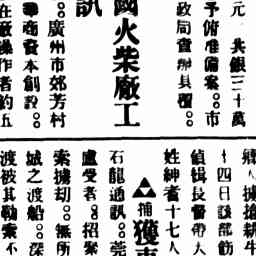 元。共銀三十萬
予俯准備案。。市
政局査辦具覆。。
國火柴廠工
訊
。。廣州市郊芳村
華商資本創設。。
在廠操作者約五
鄉人擄搶耕牛
十四日該部飭
偵緝長督帶大
姓紳耆十七人
▲捕獲東
石龍通訊。。莞
盧受者。招聚
索擄刦。。無所
城之渡船。。深
渡被其勒索不